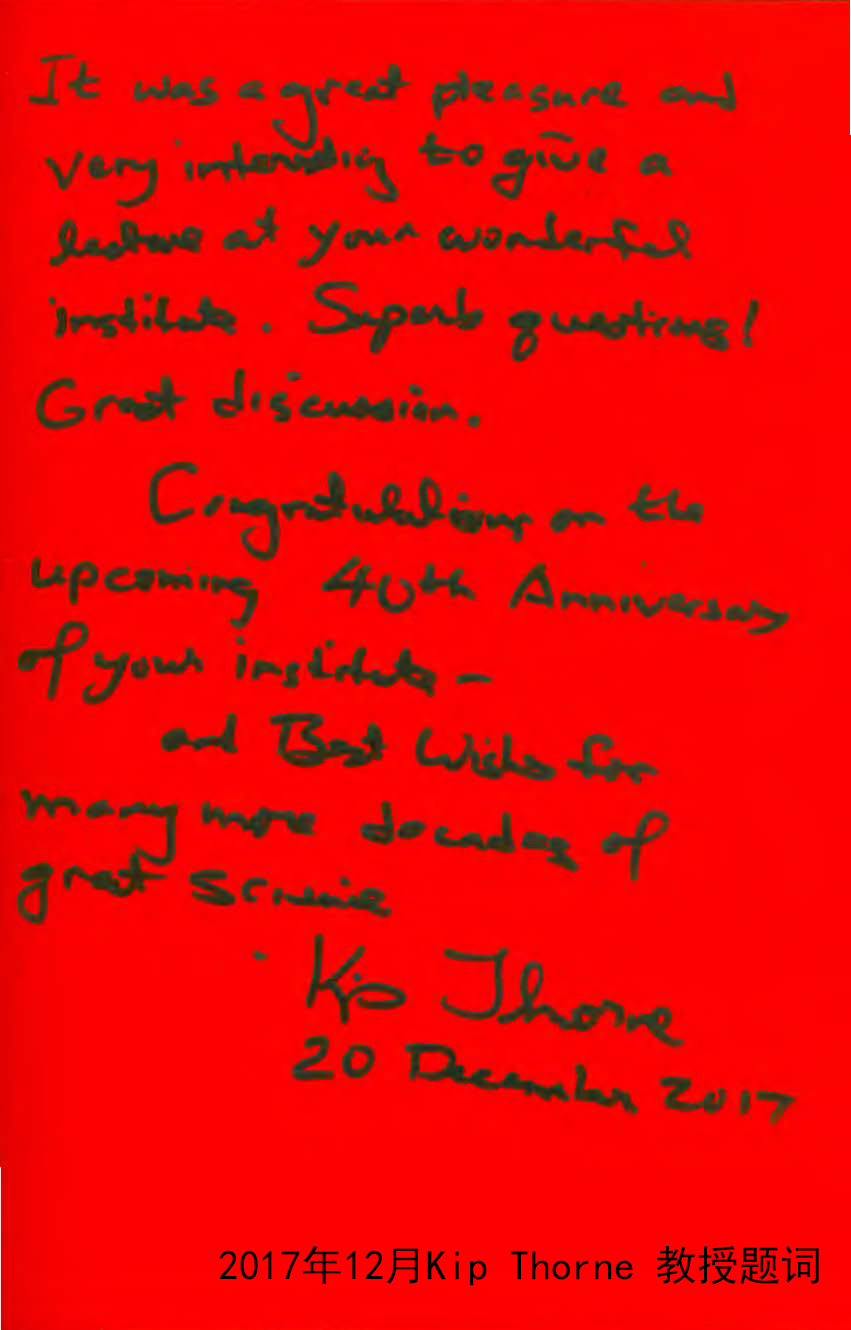 It was a great pleasure and
very interesting to give a
lecture at your wonderful
institute. Superb questions!
Great discussion.
Congratulations on the
upcoming 40th Anniversary
of your institute –
and Best Wishes for
many more decades of
great science
Kip Thorne
20 December 2017
2017年12月Kip Thorne 教授题词